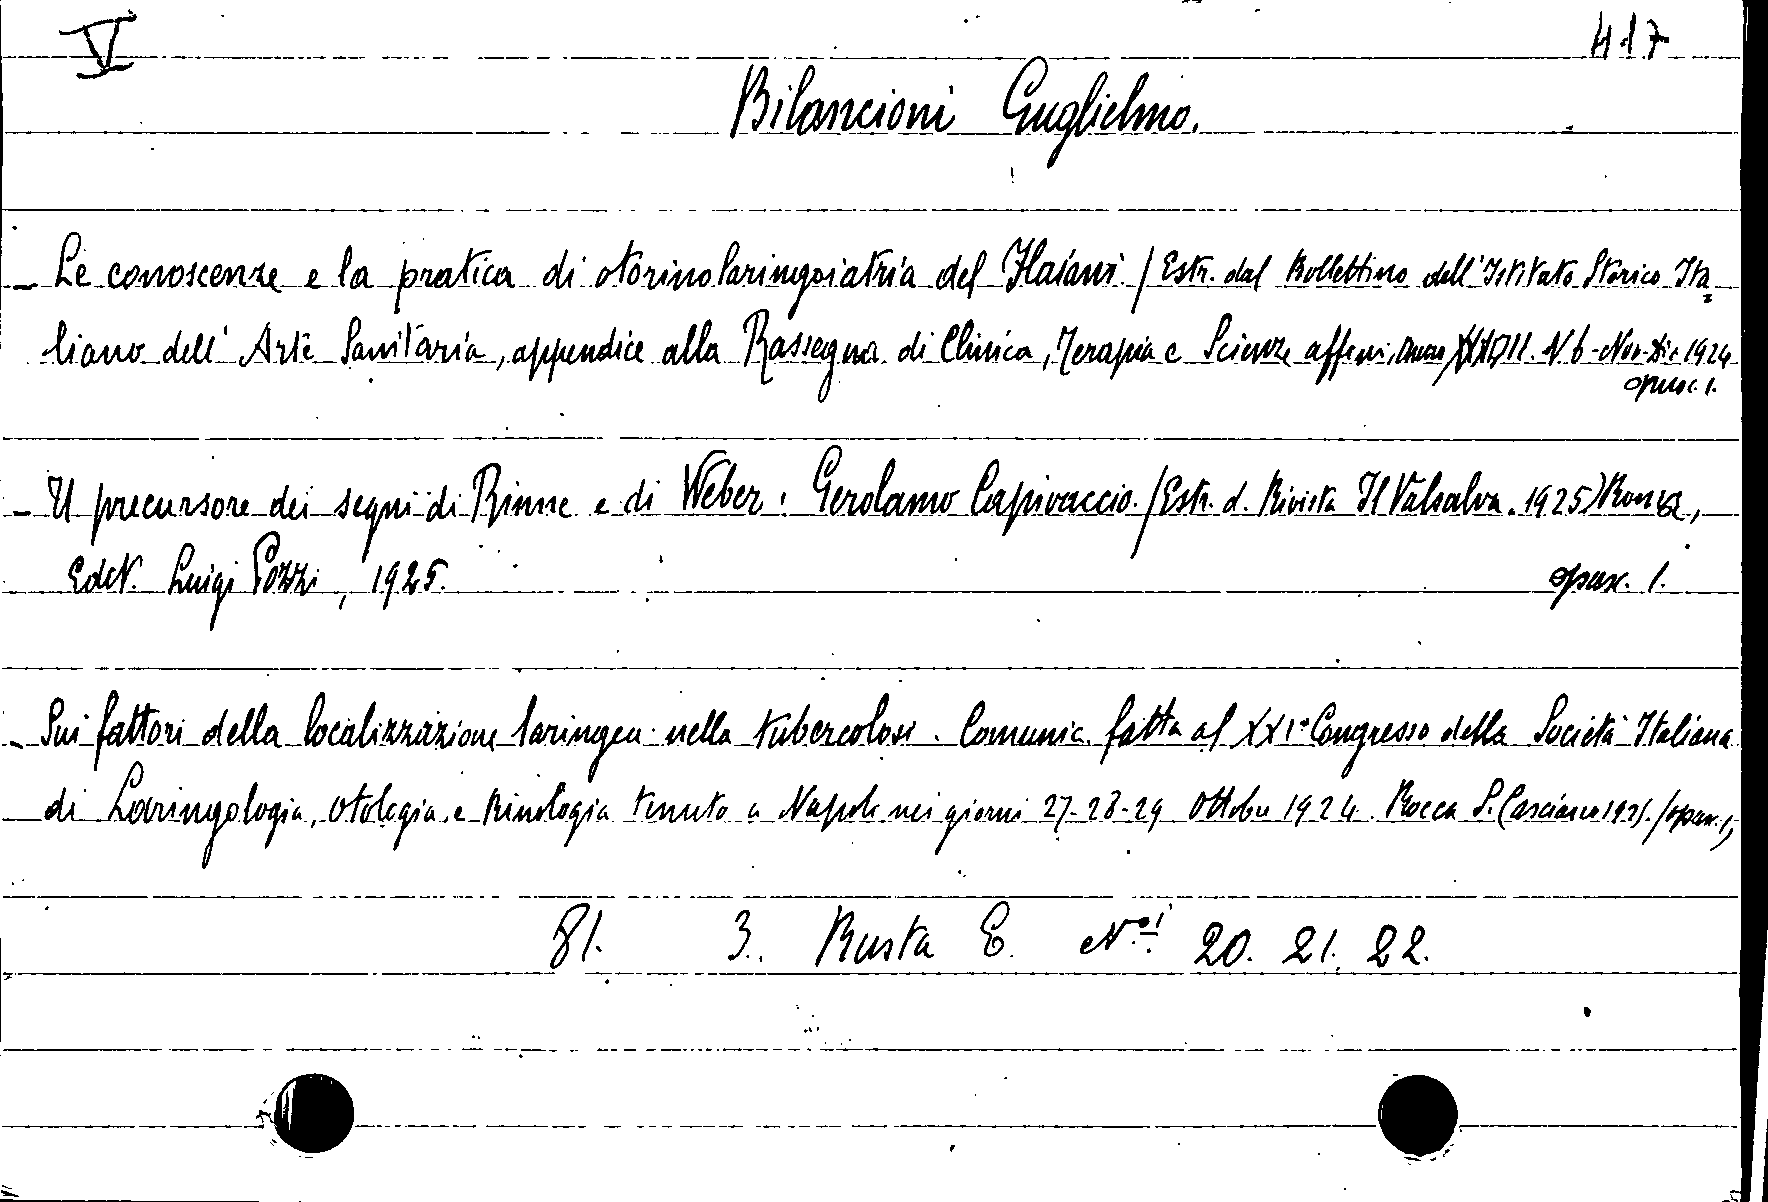 V
417
Bilancioni Guglielmo.
- Le conoscenze e la pratica di otorinolaringoiatria del Flaiani / Estr. dal Bollettino dell'Istituto Storico Ita=
liano dell'Arte Sanitaria, appendice alla Rassegna di Clinica, Terapia e Scienze affini, Anno N. 6 - Nov-Dic 1924
opusc. 1.
- Il precursore dei segni di Rinne e di Weber: Gerolamo Capivaccio. / Estr. d. Rivista Il Valsalva. 1925) Roma,
Edit. Luigi Pozzi, 1925.
opusc. 1.
- Sui fattori della localizzazione laringea nella tubercolosi. Comunic. fatta al XXI° Congresso della Società Italiana
di Laringologia, Otologia, e Rinologia tenuto a Napoli nei giorni 27-28-29 Ottobre 1924. Rocca S. Casciano 1925. / opusc. 1,
81. 3. Busta E. N.i 20. 21. 22.